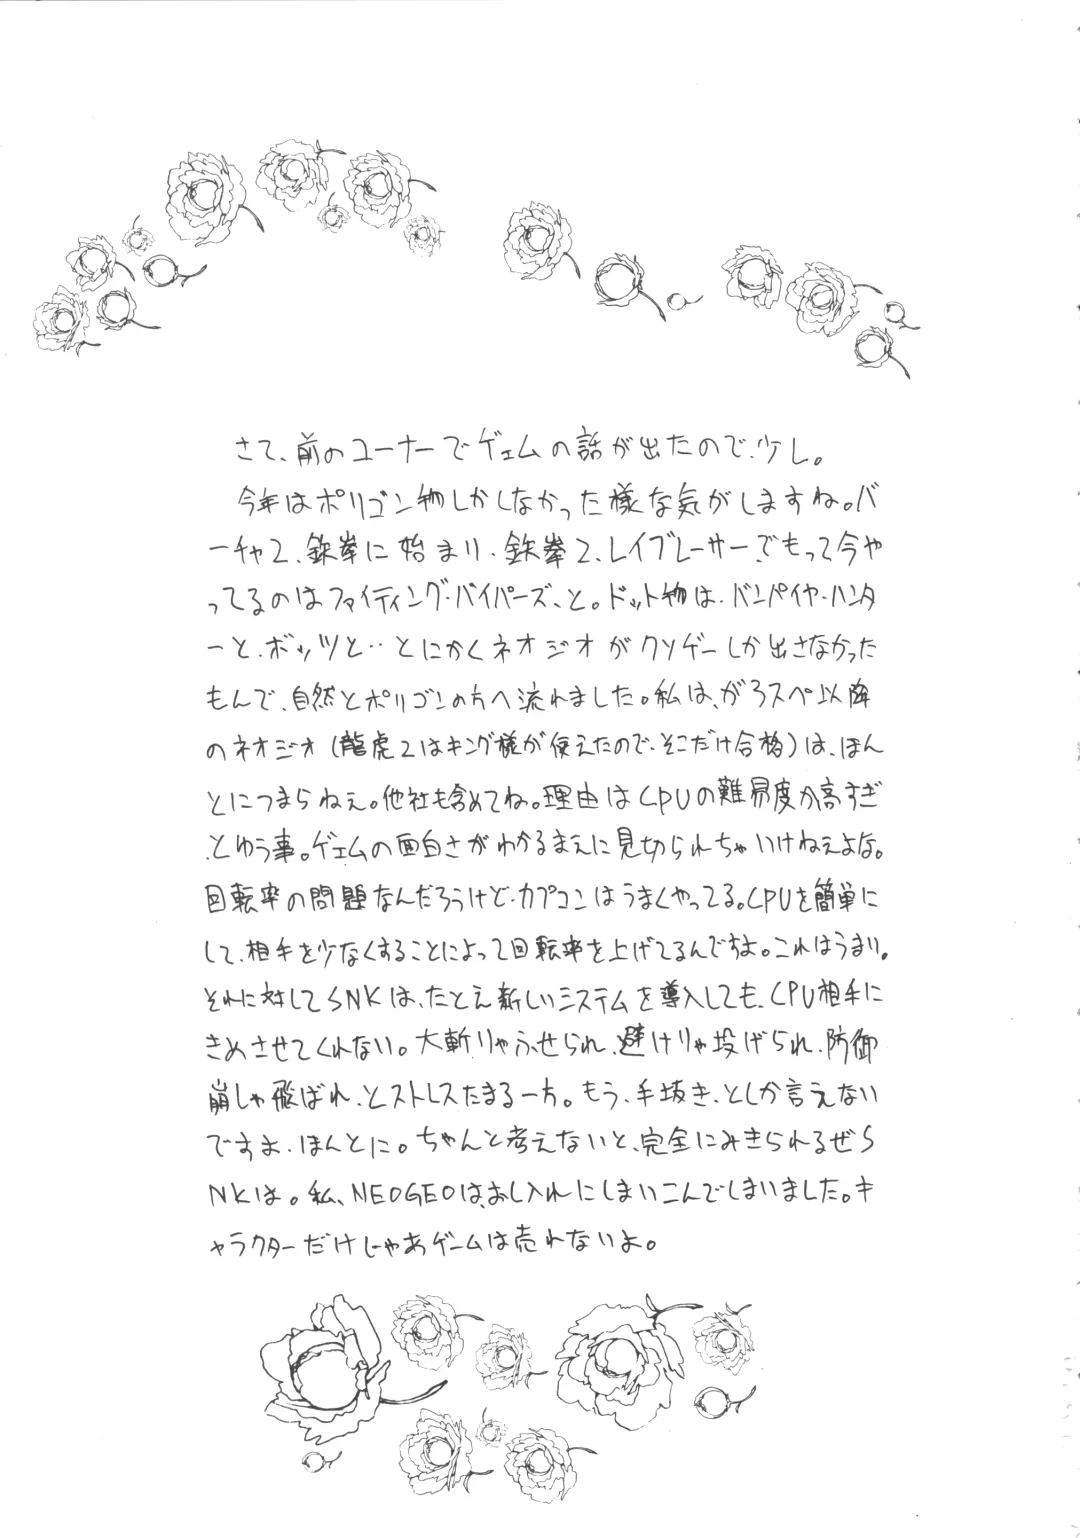 さて、前のコーナーでゲェムの話が出たので、少し。
今年はポリゴン物しかしなかった様な気がしますね。バ
ーチャ2、鉄拳に始まり、鉄拳2、レイブレーサー、でもって今や
ってるのはファイティング・バイパーズ、と。ドット物は、バンパイヤ・ハンタ
ーと、ボッツと‥とにかくネオジオがクソゲーしか出さなかった
もんで、自然とポリゴンの方へ流れました。私は、がろスペ以降
のネオジオ(龍虎2はキング様が使えたので、そこだけ合格)は、ほん
とにつまらねぇ。他社も含めてね。理由はCPUの難易度が高すぎ
、とゆう事。ゲェムの面白さがわかるまえに見切られちゃいけねぇよな。
回転率の問題なんだろうけど、カプコンはうまくやってる。CPUを簡単に
して、相手を少なくすることによって回転率を上げてるんですよ。これはうまい。
それに対してSNKは、たとえ新しいシステムを導入しても、CPU相手に
きめさせてくれない。大斬りゃふせられ、避けりゃ投げられ、防御
崩しゃ飛ばれ、とストレスたまる一方。もう、手抜き、としか言えない
ですよ、ほんとに。ちゃんと考えないと、完全にみきられるぜS
NKは。私、NEOGEOは、おし入れにしまいこんでしまいました。キ
ャラクターだけじゃあゲームは売れないよ。